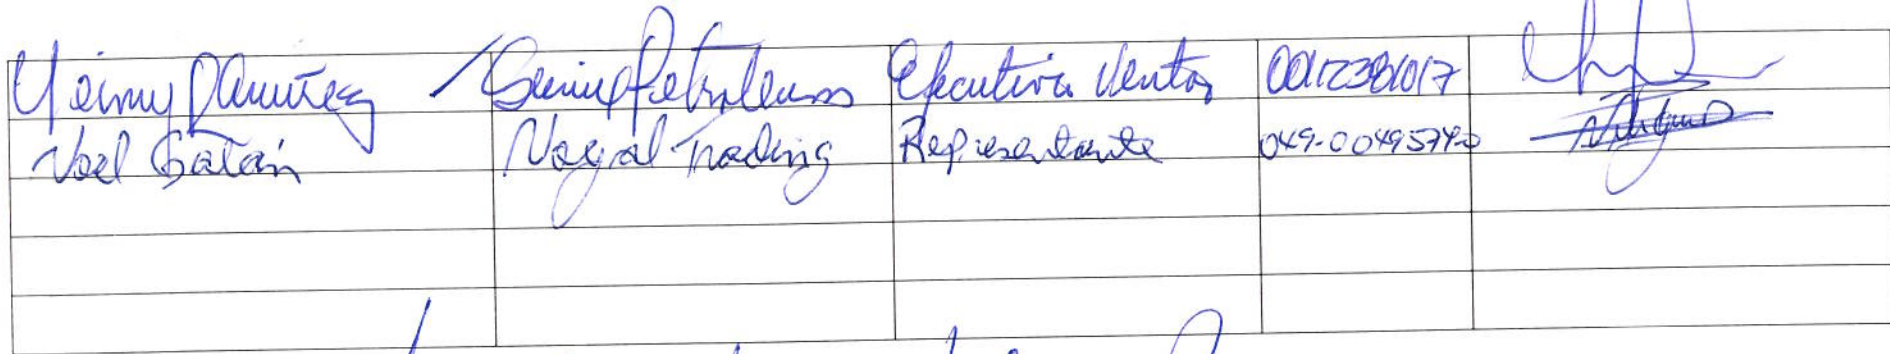 Yeimy Ramírez Petroleum Ejecutiva Ventas 00112381017
Noel Batán Noyal Trading Representante 049-0049574-0